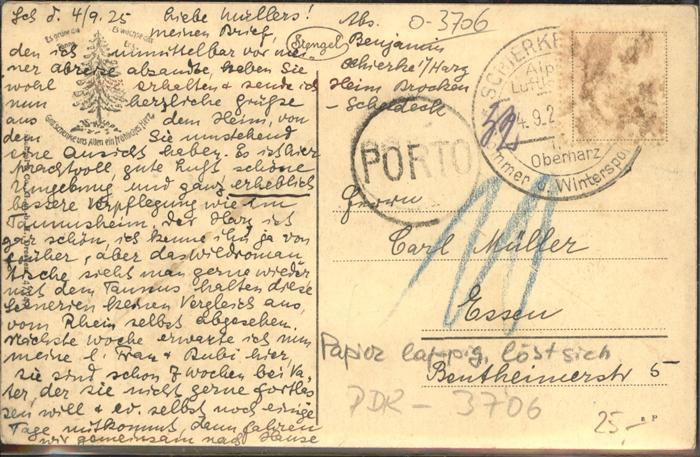 Sch d. 4/9.25 Liebe Muellers!
meinen Brief,
den ich unmittelbar vor mei-
ner Abreise absandte, haben Sie
wohl erhalten & sende ich
nun herzliche Grüsze
aus dem Heim, von
dem Sie umstehend
eine Ansicht haben. Es ist hier
prachtvoll, gute Luft, schöne
Umgebung und ganz erheblich
bessere Verpflegung wie im
Taunusheim. Der Harz ist
gar schön, ich kenne ihn ja von
früher, aber das wildroman
tische sieht man gerne wieder
mit dem Taunus halten diese
Scenerien keinen Vergleich aus,
vom Rhein selbst abgesehen.
Nächste Woche erwarte ich nun
meine l. Frau & Bubi hier,
sie sind schon 7 Wochen bei Va-
ter, der sie nicht gerne fortlas
sen will & ev. selbst noch einige
Tage mitkommt, dann fahren
wir gemeinsam nach Hause
Es grüne die Tanne
Es wachse das Erz
Gott schenke uns Allen ein fröhliches Herz
Abs. O-3706
Stengel Benjamin
Schierke i/Harz
Heim Brocken
-Scheideck
SCHIERKE
4.9.2
Oberharz
Sommer u. Winterspor
PORTO
Herrn
Carl Müller
Essen
Papier lappig, löst sich
Bentheimerstr 5
PDR - 3706
25,-